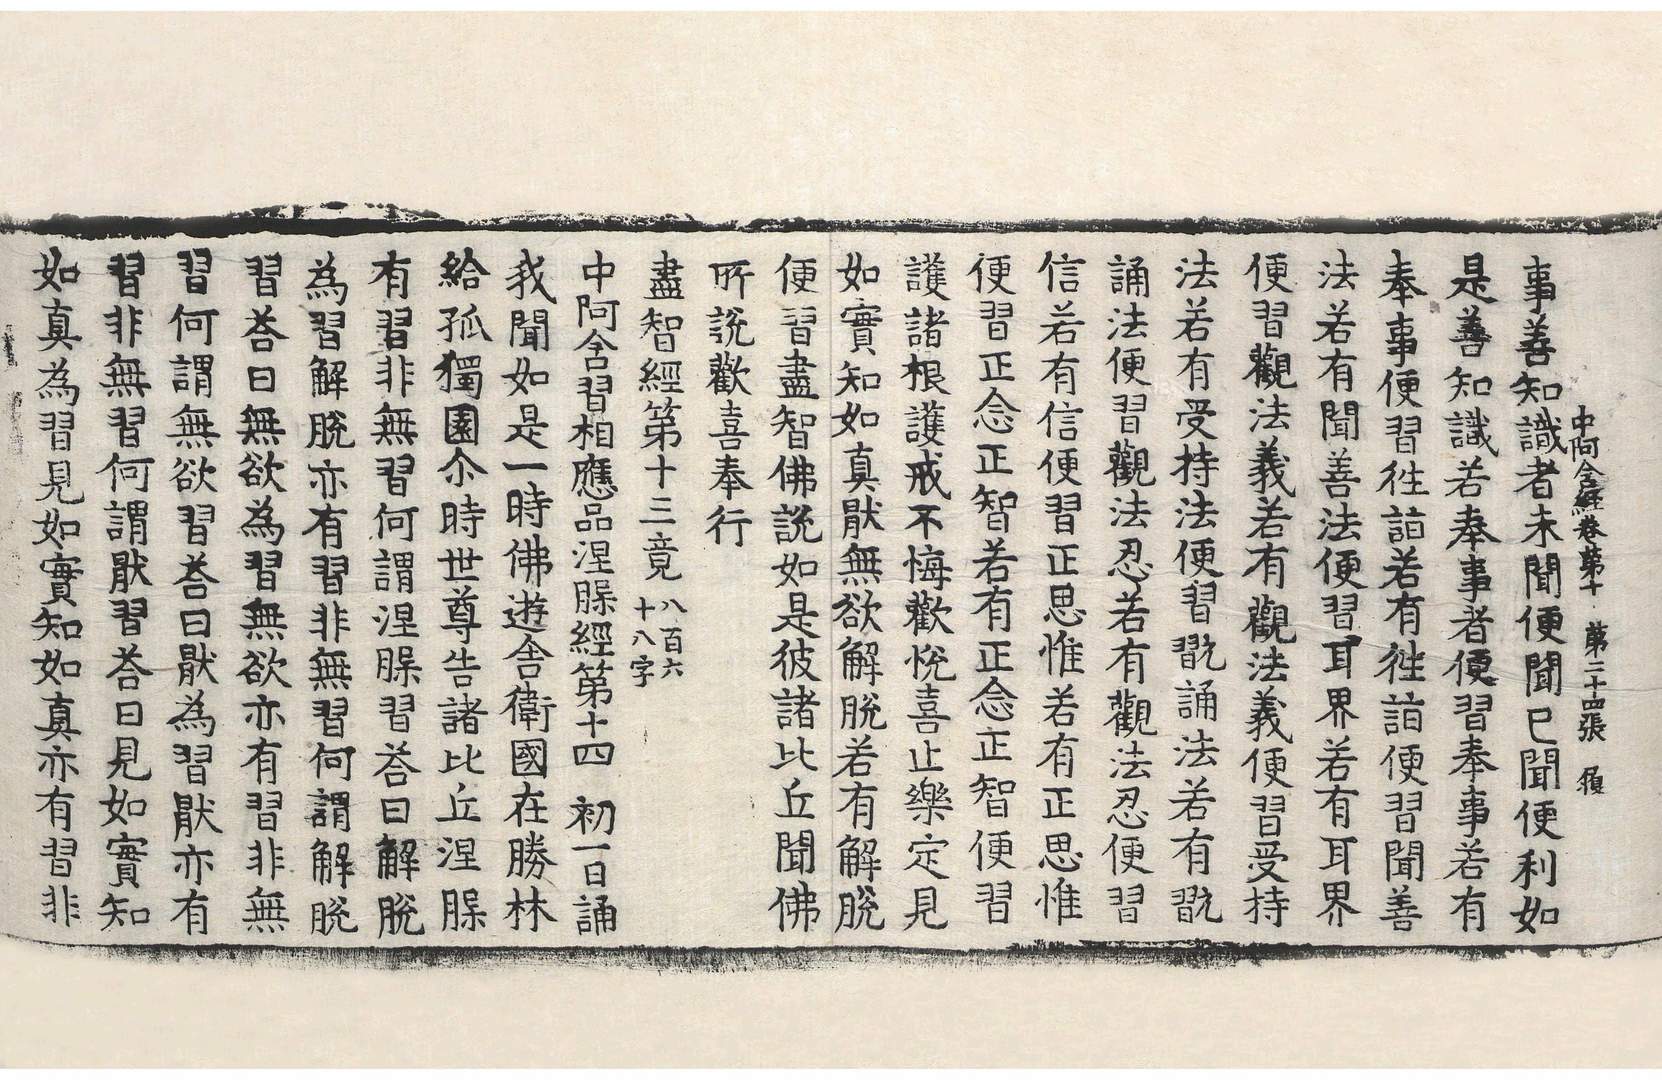 中阿含經卷第十 第二十四張 湏
事善知識者未聞便聞已聞便利如
是善知識若奉事者便習奉事若有
奉事便習徃詣若有徃詣便習聞善
法若有聞善法便習耳界若有耳界
便習觀法義若有觀法義便習受持
法若有受持法便習翫誦法若有翫
誦法便習觀法忍若有觀法忍便習
信若有信便習正思惟若有正思惟
便習正念正智若有正念正智便習
護諸根護戒不悔歡悅喜止樂定見
如實知如真猒無欲解脫若有解脫
便習盡智佛說如是彼諸比丘聞佛
所說歡喜奉行
盡智經第十三竟 八百六
十八字
中阿含習相應品涅槃經第十四 初一日誦
我聞如是一時佛遊舍衛國在勝林
給孤獨園尒時世尊告諸比丘涅槃
有習非無習何謂涅槃習荅曰解脫
為習解脫亦有習非無習何謂解脫
習荅曰無欲為習無欲亦有習非無
習何謂無欲習荅曰猒為習猒亦有
習非無習何謂猒習荅曰見如實知
如真為習見如實知如真亦有習非